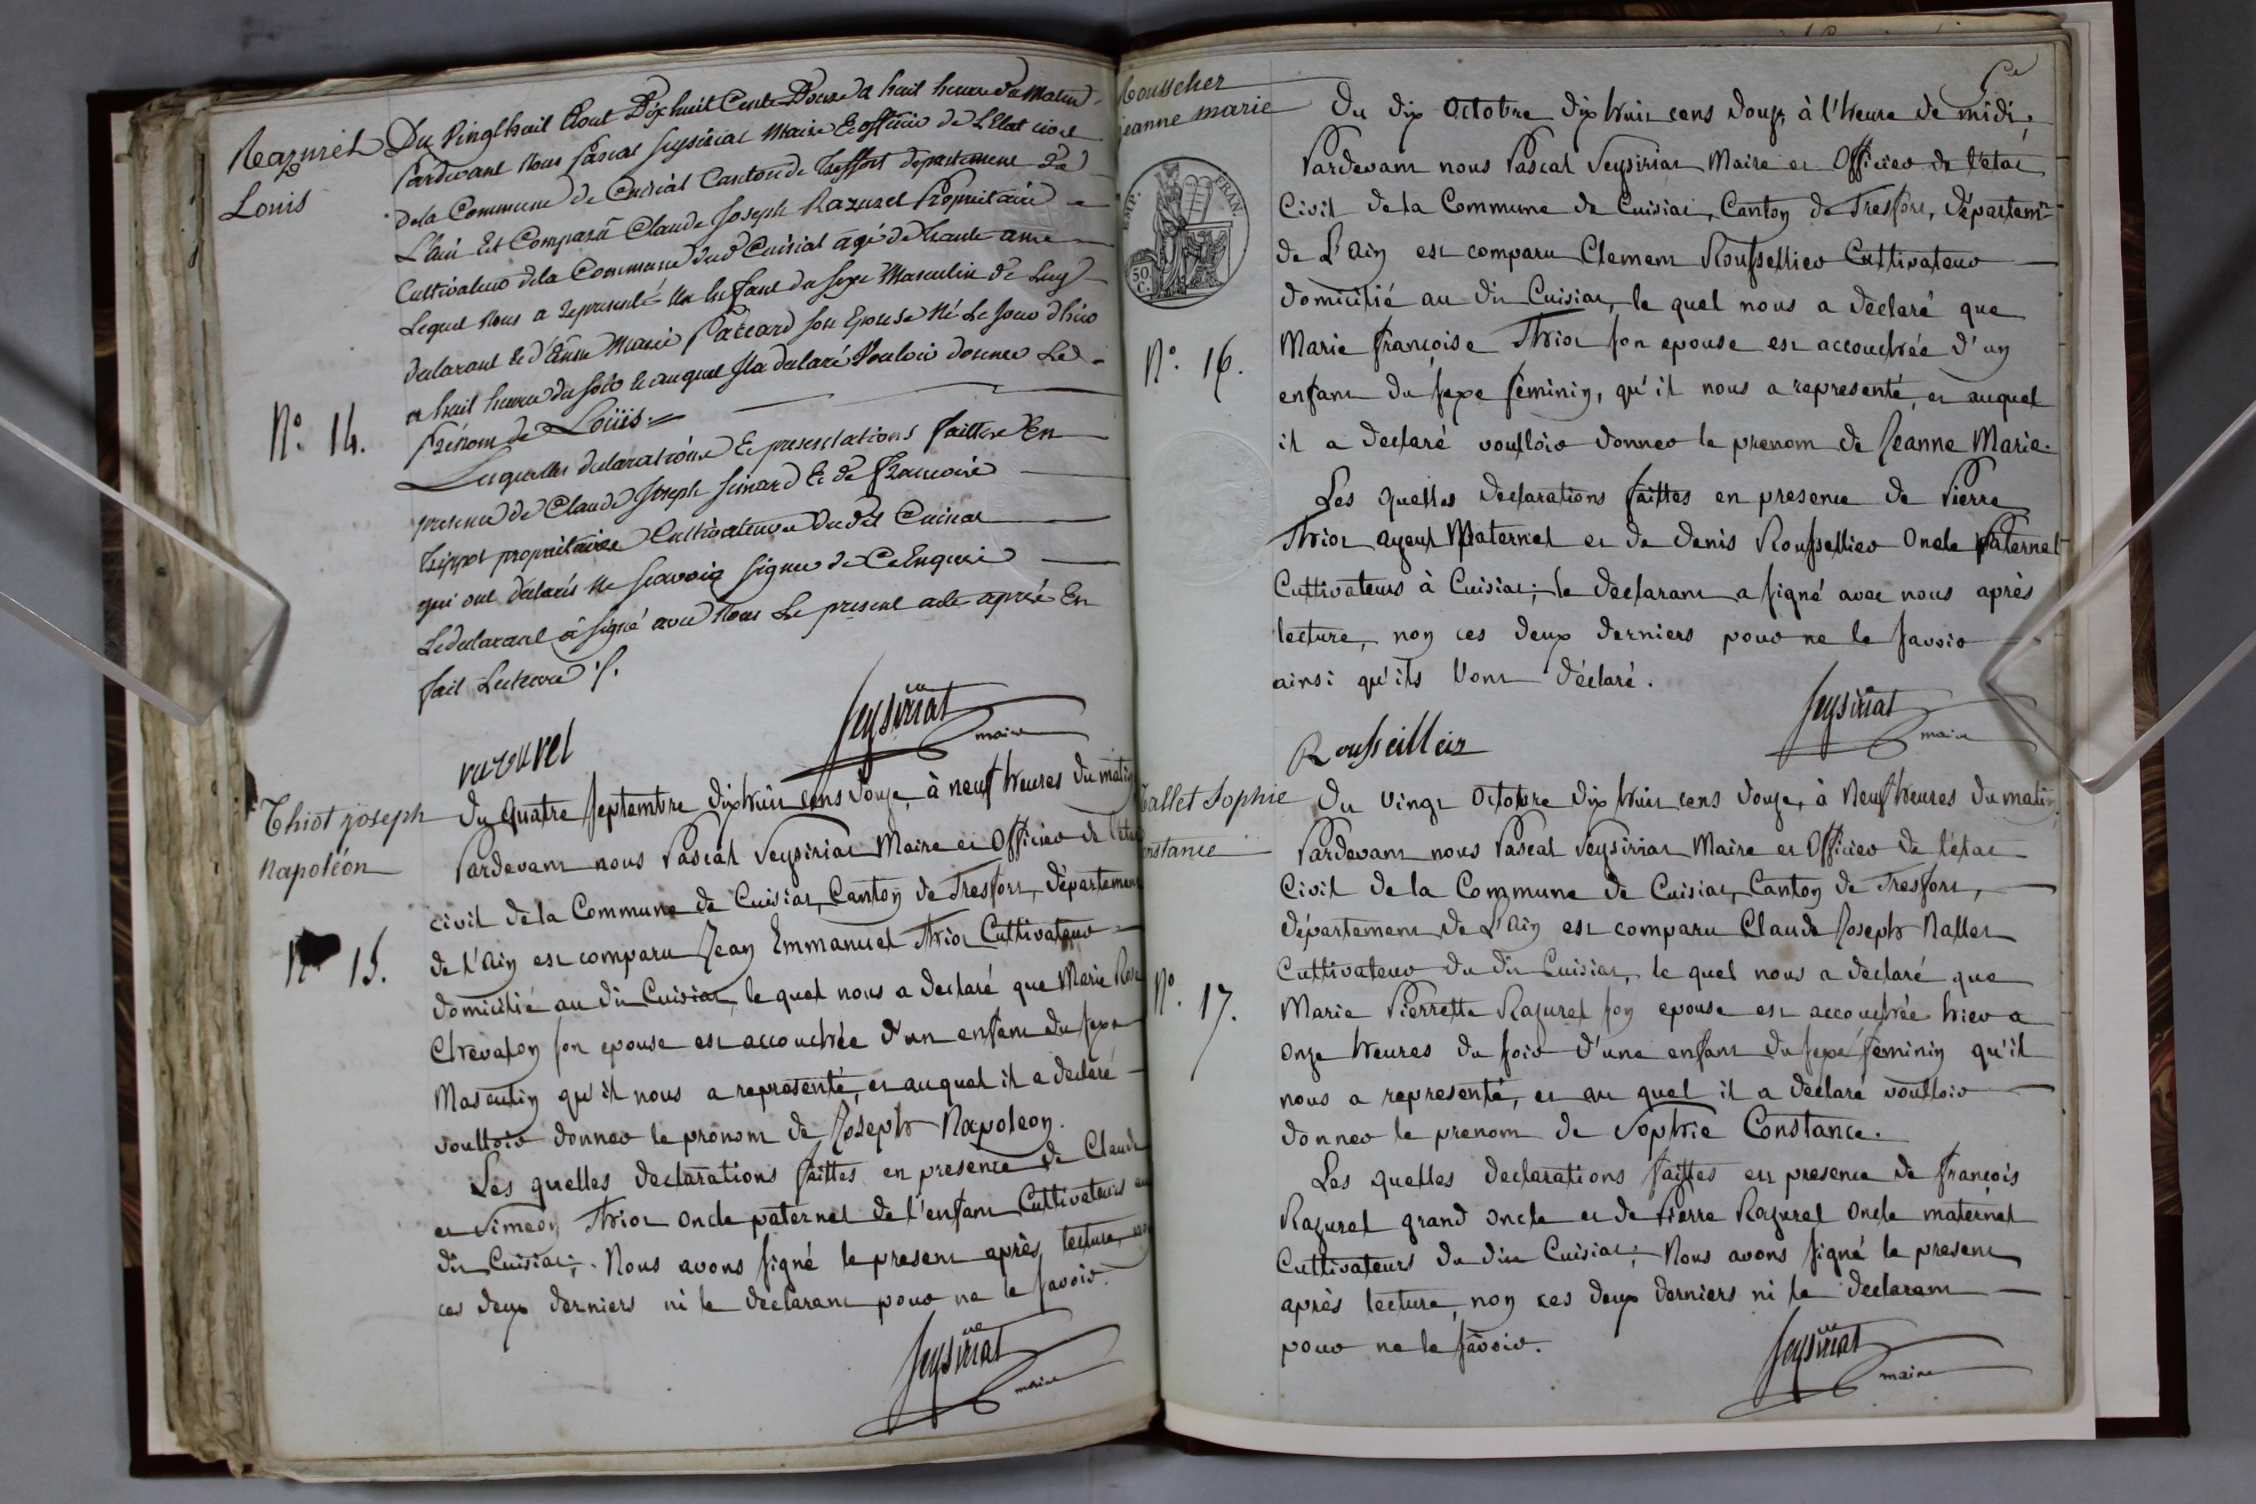 Razurel
Louis
N.º 14.
Du Vingt huit Aout Dix huit Cents Douze a huit heures du Matin
Pardevant Nous Pascal Seysiriat Maire & officier de L'Etat civil
de la Commune de Cuisiat Canton de Treffort departement de
L'ain Est Comparû Claude Joseph Razurel Proprietaire
Cultivateur de la Commune dud Cuisiat agé de trente ans
Lequel Nous a représenté Un Enfant du sexe Masculin de Luy
declarant & d'Anne Marie Paccard son Epouse Né Le Jour d'hier
a huit heures du soir & auquel Il a declaré Vouloir donner Le
Prénom de Loüis.
Lesquelles declarations & presentations faittes En
presence de Claude Joseph & de Francois
Trippot proprietaires Cultivateurs dudit Cuisiat
qui ont declarés Ne scavoir signer de Ce Enquis
Le declarant a signé avec Nous Le present acte après En
fait Lecture ./.
razurel
Seysiriat
maire
Thiot joseph
Napoléon
Nº 15.
Du quatre Septembre dix huit cens douze, à neuf heures du matin
Pardevant nous Pascal Seysiriat Maire et Officier de l'état
civil de la Commune de Cuisiat, Canton de Tresfort, département
de l'Ain est comparu Jean Emmanuel Thiot Cultivateur
domicilié au dit Cuisiat, le quel nous a declaré que Marie Rose
Chevalon son epouse est accouchée d'un enfant du sexe
Masculin qu'il nous a representé, et auquel il a declaré
voulloir donner le prenom de Joseph Napoleon.
Les quelles declarations faittes en presence de Claude
et Simeon Thiot oncle paternel de l'enfant Cultivateurs au
dit Cuisiat; Nous avons signé le present après lecture, non
ces deux derniers ni le declarant pour ne le savoir.
Seysiriat
maire
jeanne marie
EMP. FRAN.
50 C.
N.º 16.
Du dix Octobre dix huit cens douze à l'heure de midi,
Pardevant nous Pascal Seysiriat Maire et Officier de l'état
Civil de la Commune de Cuisiat, Canton de Tresfort, départem.t
de L'Ain est comparu Clement Roussellier Cultivateur
domicilié au dit Cuisiat, le quel nous a declaré que
Marie françoise Thiot son epouse est accouchée d'un
enfant du sexe feminin, qu'il nous a representé, et auquel
il a declaré voulloir donner le prenom de Jeanne Marie.
Les quelles declarations faittes en presence de Pierre
Thiot ayeul Maternel et de denis Roussellier Oncle Paternel
Cultivateurs à Cuisiat; le declarant a signé avec nous après
lecture, non ces deux derniers pour ne le savoir
ainsi qu'ils l'ont déclaré.
Rousseilleir
Seysiriat
maire
Nallet Sophie
Constance
Nº. 17.
Du vingt Octobre dix huit cens douze, à Neuf heures du matin,
Pardevant nous Pascal Seysiriat Maire et Officier de l'état
Civil de la Commune de Cuisiat, Canton de Tresfort,
département de L'Ain est comparu Claude Joseph Nallet
Cultivateur du dit Cuisiat, le quel nous a declaré que
Marie Pierrette Razurel son epouse est accouchée hier a
onze heures du soir d'une enfant du sexe feminin qu'il
nous a representé, et au quel il a declaré voulloir
donner le prenom de Sophie Constance.
Les quelles declarations faittes en presence de françois
Razurel grand oncle et de Pierre Razurel Oncle maternel
Cultivateurs du dit Cuisiat; Nous avons signé le present
après lecture, non ces deux derniers ni le declarant
pour ne le savoir.
Seysiriat
maire